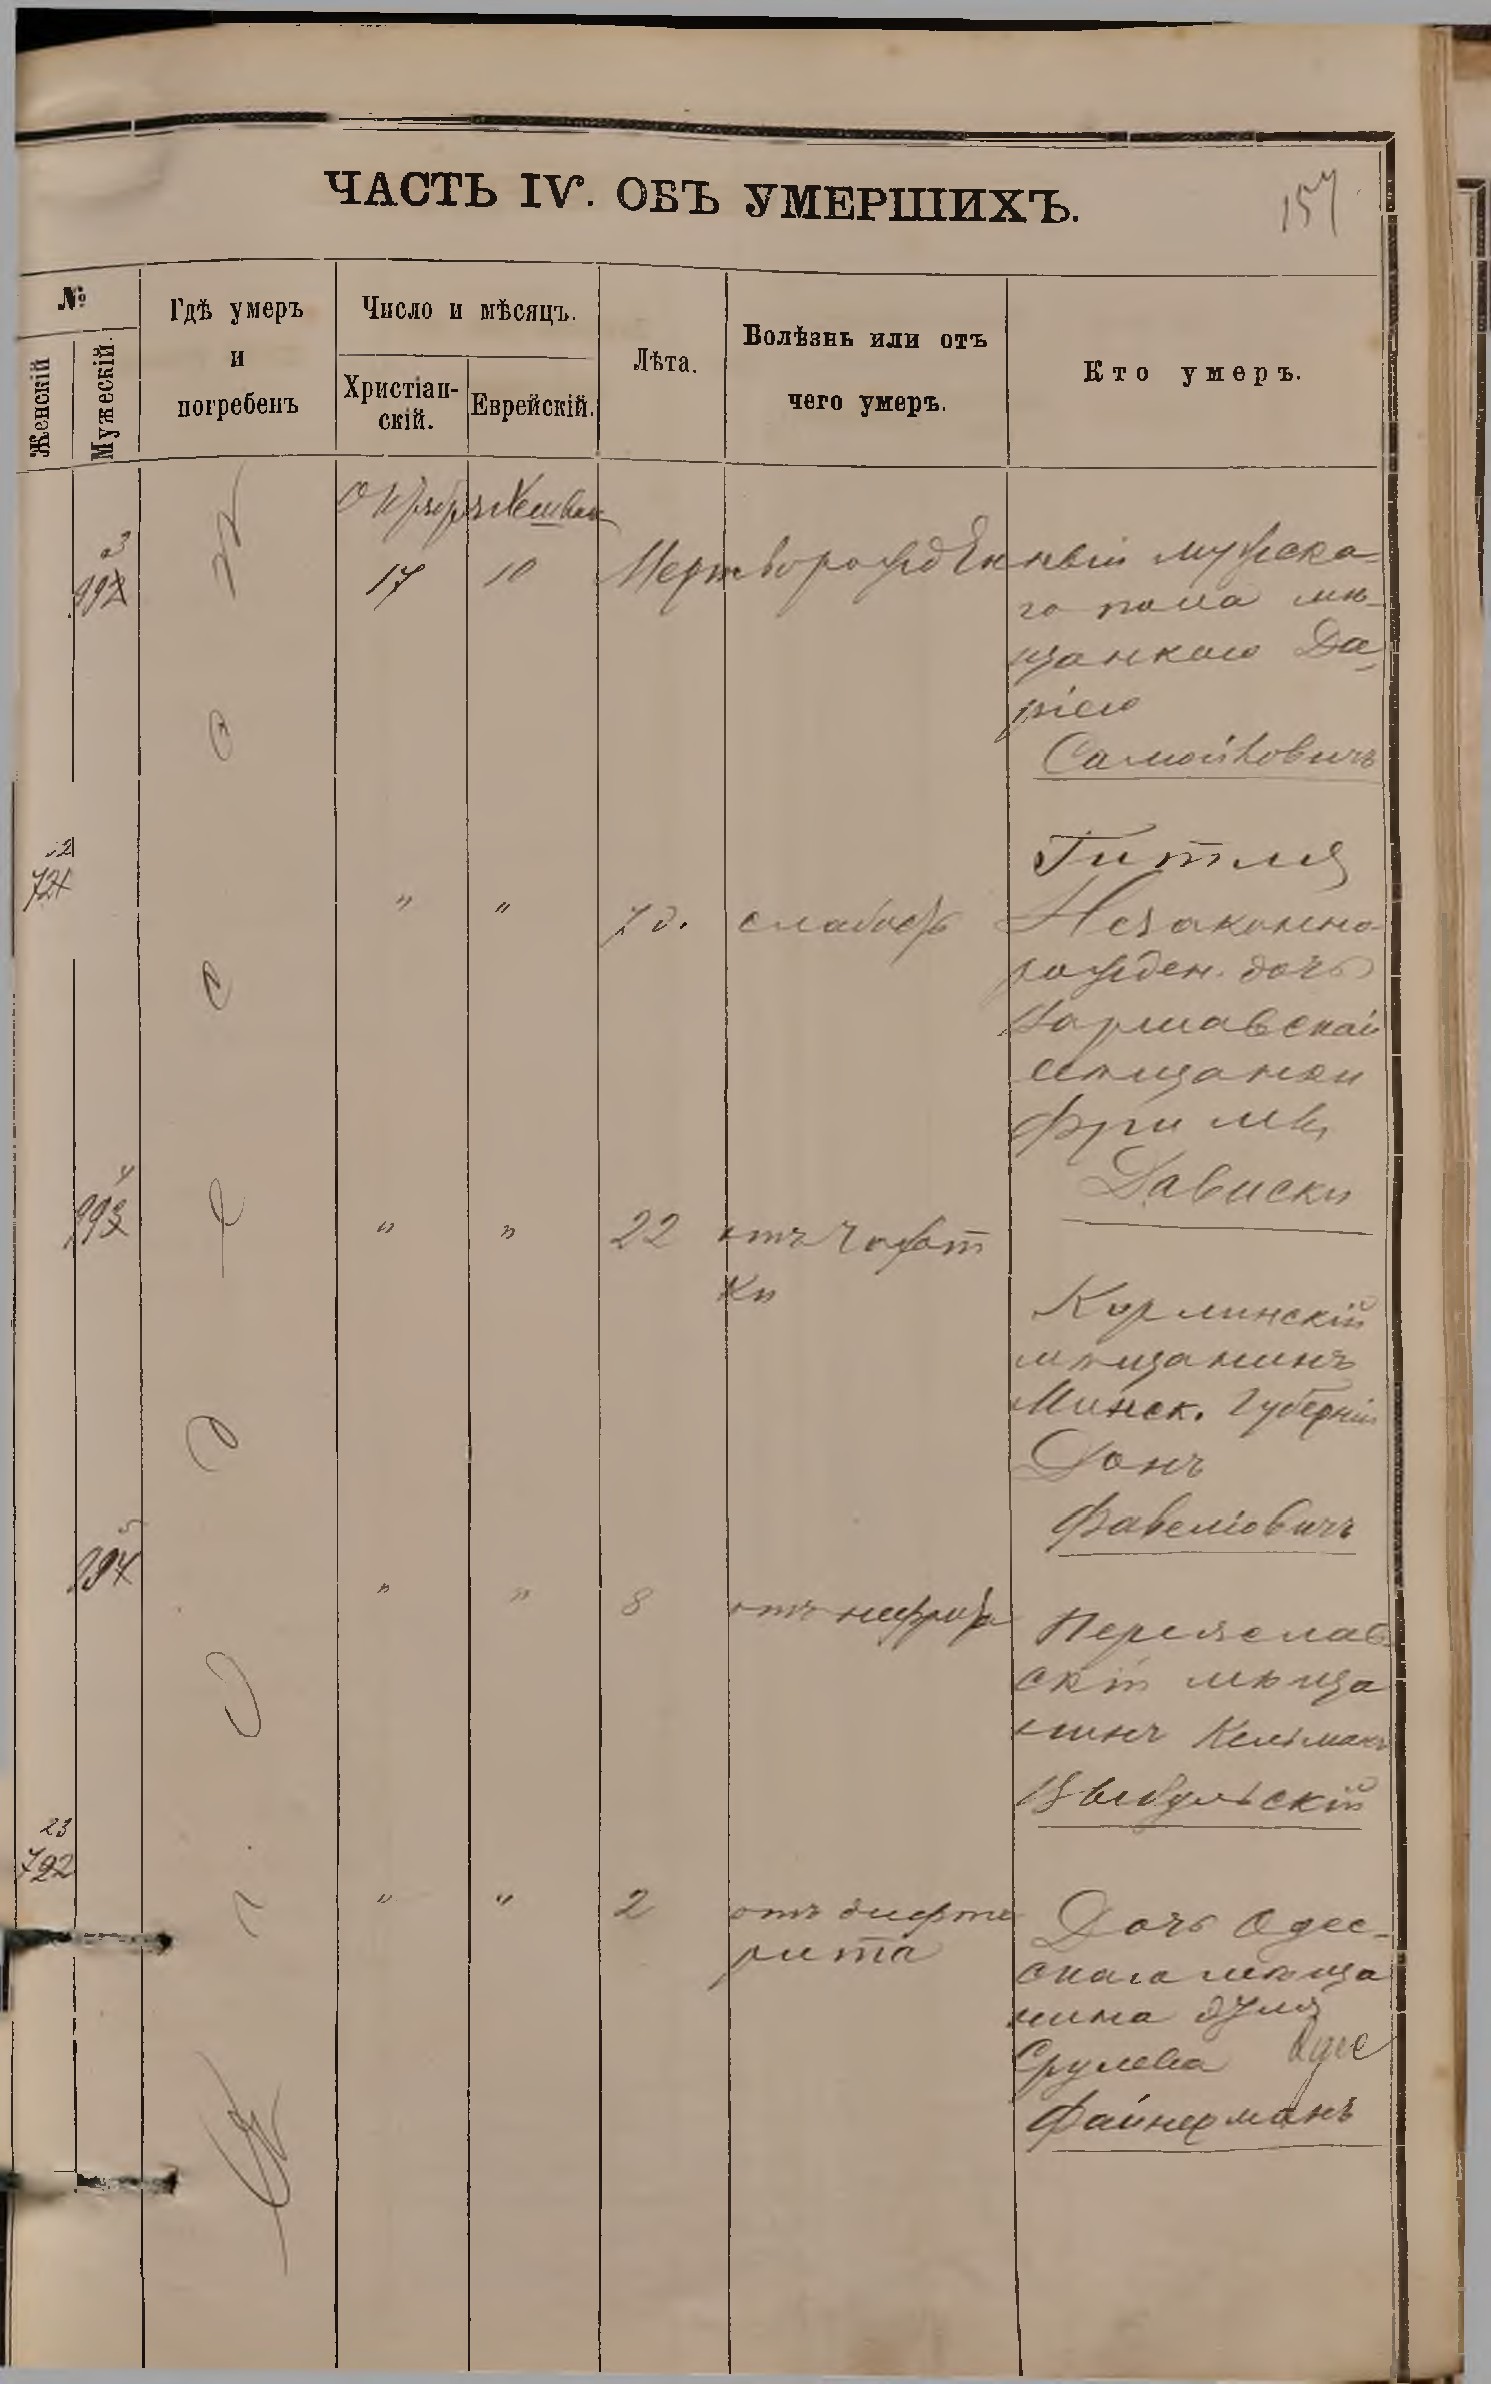 ЧАСТЬ IV. ОБЪ УМЕРШИХЪ.
157
№
Женскій
Мужескій.
Гдѣ умеръ
и
погребенъ
Число и мѣсяцъ.
Христіан-
скій.
Еврейскій.
Лѣта.
Болѣзнь или отъ
чего умеръ.
Кто умеръ.
Октябрь Хешван
3
992
17 10 Мертворожденный мужска-
го пола мѣ-
щанкою Да-
ріею
Самойловичъ
22
721
" " 7 д. слабость
Гитля
Незаконно-
рожден. дочь
Варшавской
мѣщанки
Фримы
Дависки
4
993
" " 22 отъ чахот
ки
Корлинскій
мѣщанинъ
Минск. Губерніи
Донъ
Фавеліовичъ
5
994
" " 8 отъ нефрита
Переяслав-
скій мѣща
нинъ Кельманъ
Цыбульскій
23
722
" " 2 отъ дифте
рита
Дочь Одес-
скаго мѣща
нина
Срулева
Файнерманъ
О д е с с а